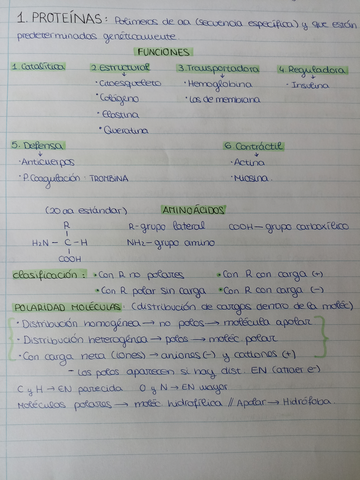 1. PROTEÍNAS: Polímeros de aa (secuencia específica) y que están
predeterminados genéticamente
FUNCIONES
1. Catalítica 2. Estructural 3. Transportadora 4. Reguladora
· Citoesqueleto · Hemoglobina · Insulina
· Colágeno · Los de membrana
· Elastina
· Queratina
5. Defensa 6. Contráctil
· Anticuerpos · Actina
· P. Coagulación - TROMBINA · Miosina
(20 aa estándar) AMINOÁCIDOS
R R-grupo lateral COOH-grupo carboxílico
H₂N - C - H NH₂-grupo amino
COOH
Clasificación: • Con R no polares • Con R con carga (+)
• Con R polar sin carga • Con R con carga (-)
POLARIDAD MOLÉCULAS: (distribución de cargas dentro de la moléc)
· Distribución homogénea → no polos → molécula apolar
· Distribución heterogénea → polos → moléc polar
· Con carga neta (iones) → aniones (-) y cationes (+)
- Los polos aparecen si hay dist. EN (atraer e⁻)
C y H → EN parecida O y N → EN mayor
Moléculas polares → moléc hidrofílica // Apolar → Hidrófoba